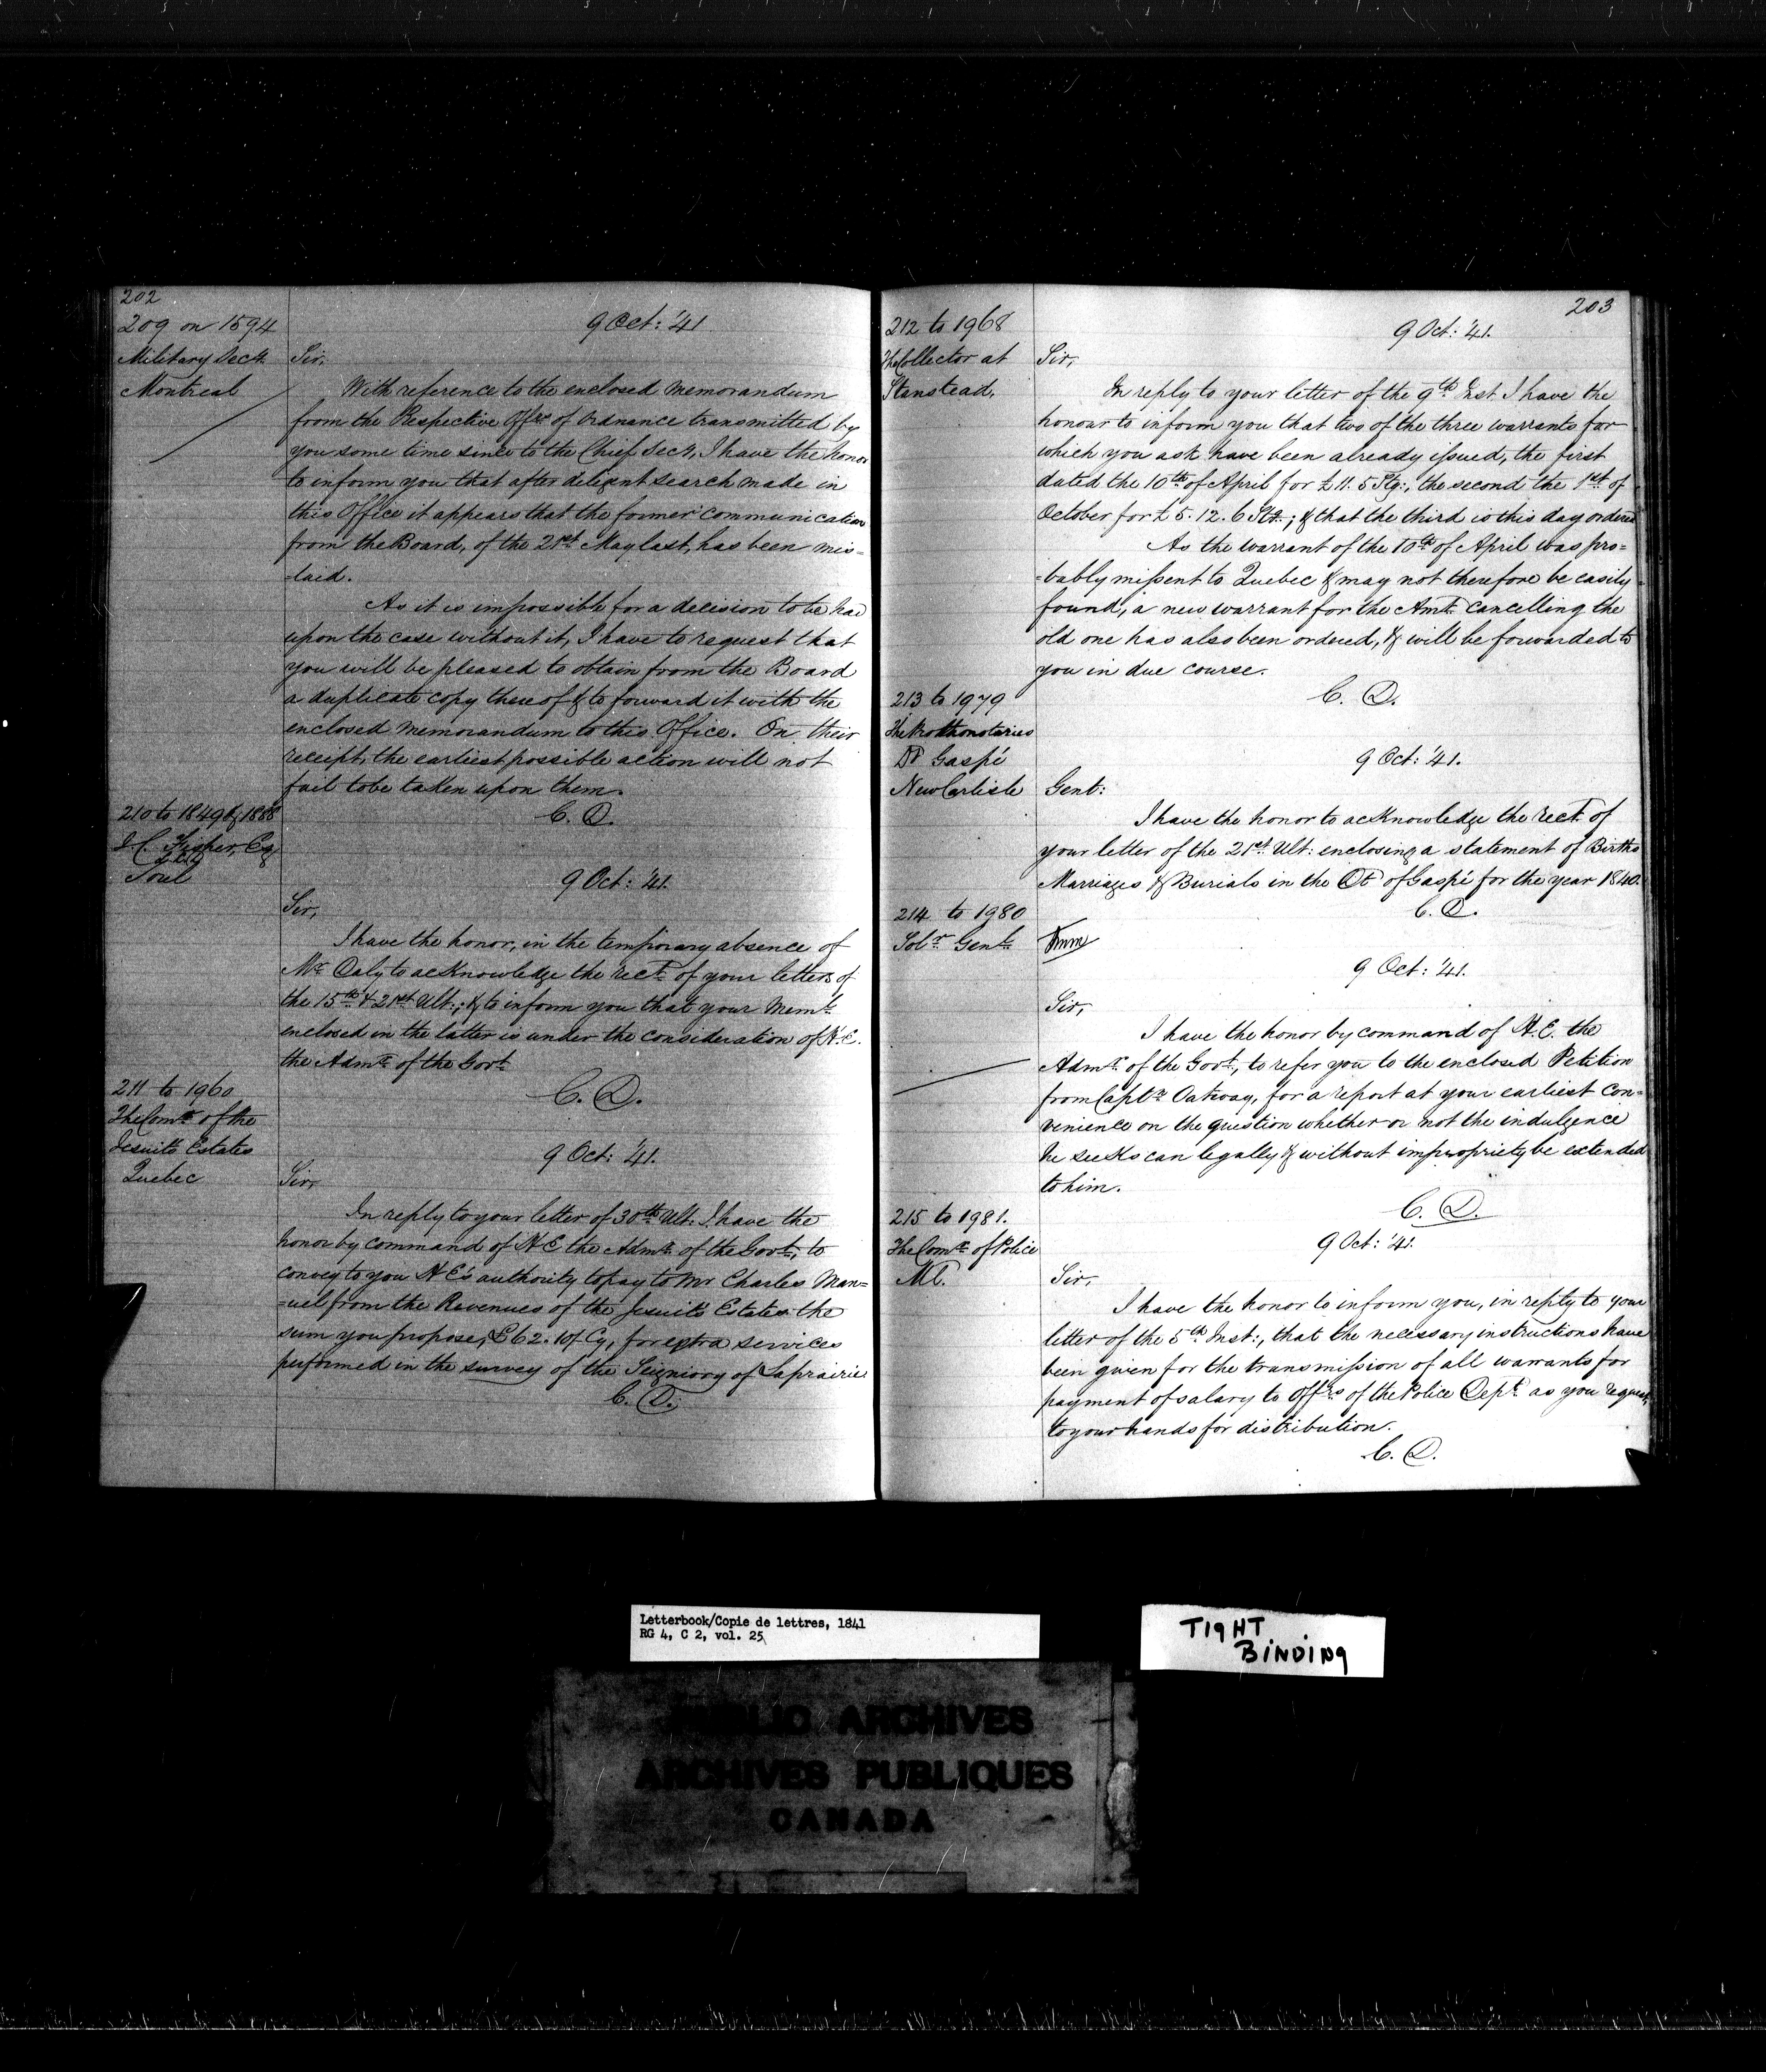 202
209 on 1594
Military Secy.
Montreal
9 Oct: '41
Sir,
With reference to the enclosed memorandum
from the Respective Offrs of Ordnance transmitted by
you some time since to the Chief Secy, I have the honor
to inform you that after diligent search made in
this Office it appears that the former communication
from the Board, of the 21st May last, has been mis=
-laid.
As it is impossible for a decision to be had
upon the case without it, I have to request that
you will be pleased to obtain from the Board
a duplicate copy thereof & to forward it with the
enclosed memorandum to this Office. On their
receipt, the earliest possible action will not
fail to be taken upon them.
C. D.
210 to 1849 & 1888
J. C. Fisher, Esq
9 Oct: '41.
Sir,
I have the honor, in the temporary absence of
Mr Daly to acknowledge the rect. of your letters of
the 15th & 21st Ult:; & to inform you that your Meml.
enclosed in the latter is under the consideration of H.E.
the Admr. of the Govt.
C. D.
211 to 1960
The Comr. of the
Jesuits Estates
Quebec
9 Oct: '41.
Sir,
In reply to your letter of 30th Ult: I have the
honor by command of H E the Admr. of the Govt., to
convey to you H E's authority to pay to Mr Charles Man=
=uel from the Revenues of the Jesuits Estates the
sum you propose, £62.10/ Cy, for extra services
performed in the survey of the Seigniory of Laprairie
C. D.
203
212 to 1968
The Collector at
Stanstead.
9 Oct: '41.
Sir,
In reply to your letter of the 9th Inst I have the
honour to inform you that two of the three warrants for
which you ask have been already issued, the first
dated the 10th of April for £11. 5 Stg:, the second the 1st of
October for £5. 12. 6 Stg.; & that the third is this day ordered
As the warrant of the 10th of April was pro=
=bably missent to Quebec & may not therefore be easily
found, a new warrant for the Amt. cancelling the
old one has also been ordered, & will be forwarded to
you in due course.
C. D.
213 to 1979
The Prothonotaries
Dt Gaspé
New Carlisle
9 Oct: '41.
Gent:
I have the honor to acknowledge the rect. of
your letter of the 21st Ult: enclosing a statement of Births
Marriages & Burials in the Dt of Gaspé for the year 1840.
C. D.
214 to 1980
Solr. Genl.
9 Oct: '41.
Sir,
I have the honor by command of H. E. the
Admr. of the Govt., to refer you to the enclosed Petition
from Captn Oatway, for a report at your earliest con=
venience on the question whether or not the indulgence
he seeks can legally & without impropriety be extended
to him.
C. D.
215 to 1981.
The Comr. of Police
Ml.
9 Oct: '41.
Sir,
I have the honor to inform you, in reply to your
letter of the 5th Inst:, that the necessary instructions have
been given for the transmission of all warrants for
payment of salary to Offrs of the Police Dept. as you request,
to your hands for distribution.
C. D.
Letterbook/Copie de lettres, 1841
RG 4, C 2, vol. 25
TIGHT
BINDING
PUBLIC ARCHIVES
ARCHIVES PUBLIQUES
CANADA